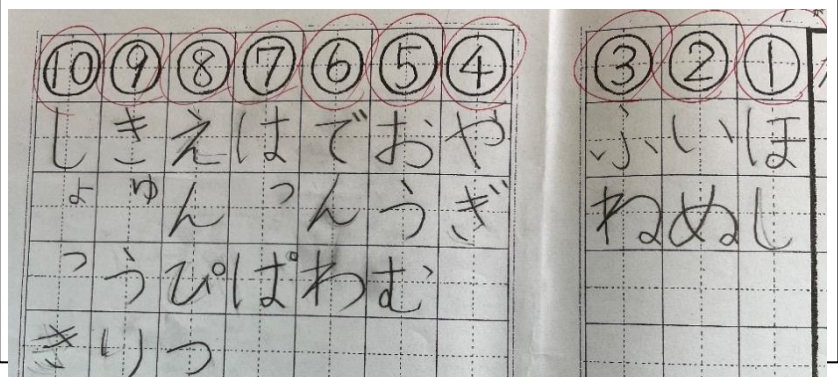 ①ほし
②いぬ
③ふね
④やぎ
⑤おうむ
⑥でんわ
⑦はっぱ
⑧えんぴつ
⑨きゅうり
⑩しょっき